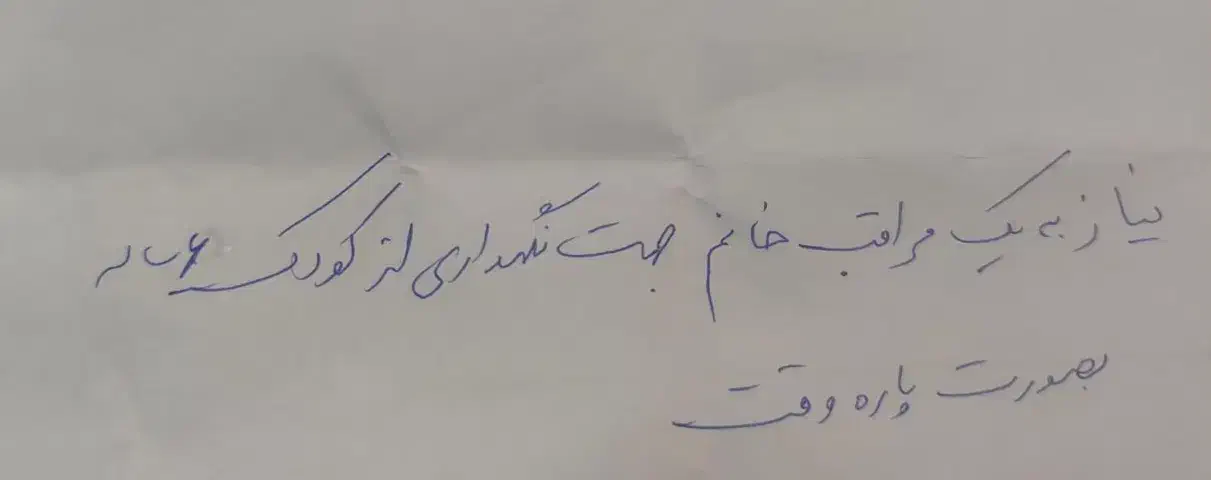 نیاز به یک مراقب خانم جهت نگهداری از کودک ۶ ساله
بصورت پاره وقت